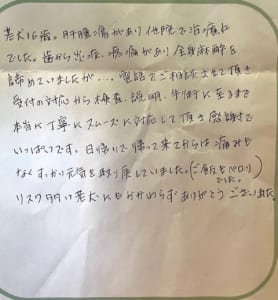 老犬16歳。肝腫瘍があり他院で治療中
でした。歯から炎症、疼痛があり全身麻酔を
諦めていましたが…、電話でご相談させて頂き
受付の対応から検査、説明、手術に至るまで
本当に丁寧にスムーズに対応して頂き感謝で
いっぱいです。日帰りで帰って来てからは痛みも
なくすっかり元気を取り戻していました。(ご飯もペロリ
でした。)
リスク高い老犬にもかかわらずありがとうございました。